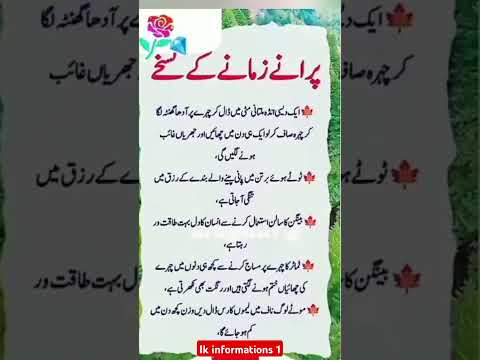 پرانے زمانے کے نسخے
ایک دیسی انڈہ ملتانی مٹی میں ڈال کر چہرے پر آدھا گھنٹہ لگا
کر چہرہ صاف کر لو ایک ہی دن میں چھائیں اور جھریاں غائب
ہونے لگیں گی،
ٹوٹے ہوئے برتن میں پانی پینے والے بندے کے رزق میں
تنگی آجاتی ہے،
بینگن کا سالن استعمال کرنے سے انسان کا دل بہت طاقت ور
رہتا ہے،
ٹماٹر کا چہرے پر مساج کرنے سے کچھ ہی دنوں میں چہرے
کی چھائیاں ختم ہونے لگتی ہیں اور رنگت بھی نکھرتی ہے،
موٹے لوگ ناف میں لیموں کا رس ڈال دیں وزن کچھ دن میں
کم ہو جائے گا،
Ik informations 1